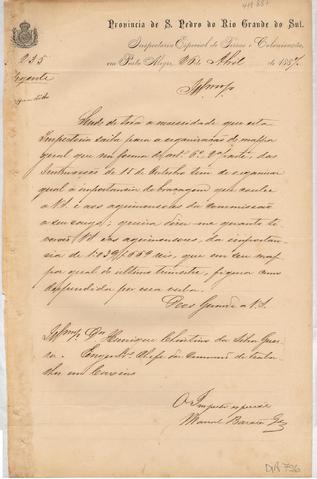 419 887
Provincia de S. Pedro do Rio Grande do Sul.
Inspectoria Especial de Terras e Colonisação,
em Porto Alegre, 26 de Abril de 1887.
235
Urgente
Illmo Sr
Sendo de toda a necessidade que esta
Inspectoria saiba para a organisação do mappa
geral que na forma do art. 6º das
Instrucções de 11 de Outubro tem de organisar
qual a importancia de
V.S. e aos agrimensores da commissão
a seu cargo; queira dizer-me quanto
V.S. e os agrimensores, da importan-
cia de que em seu map-
pa geral do ultimo trimestre, figura como
despendida por essa verba.
Deos Guarde a V.S.
Illmo Sr Dor Henrique Christino da Silva Guer-
ra. Engenro Chefe da Commissão de traba-
lhos em Caxias
O Inspector especial
Manoel Barata Góes
DA 796